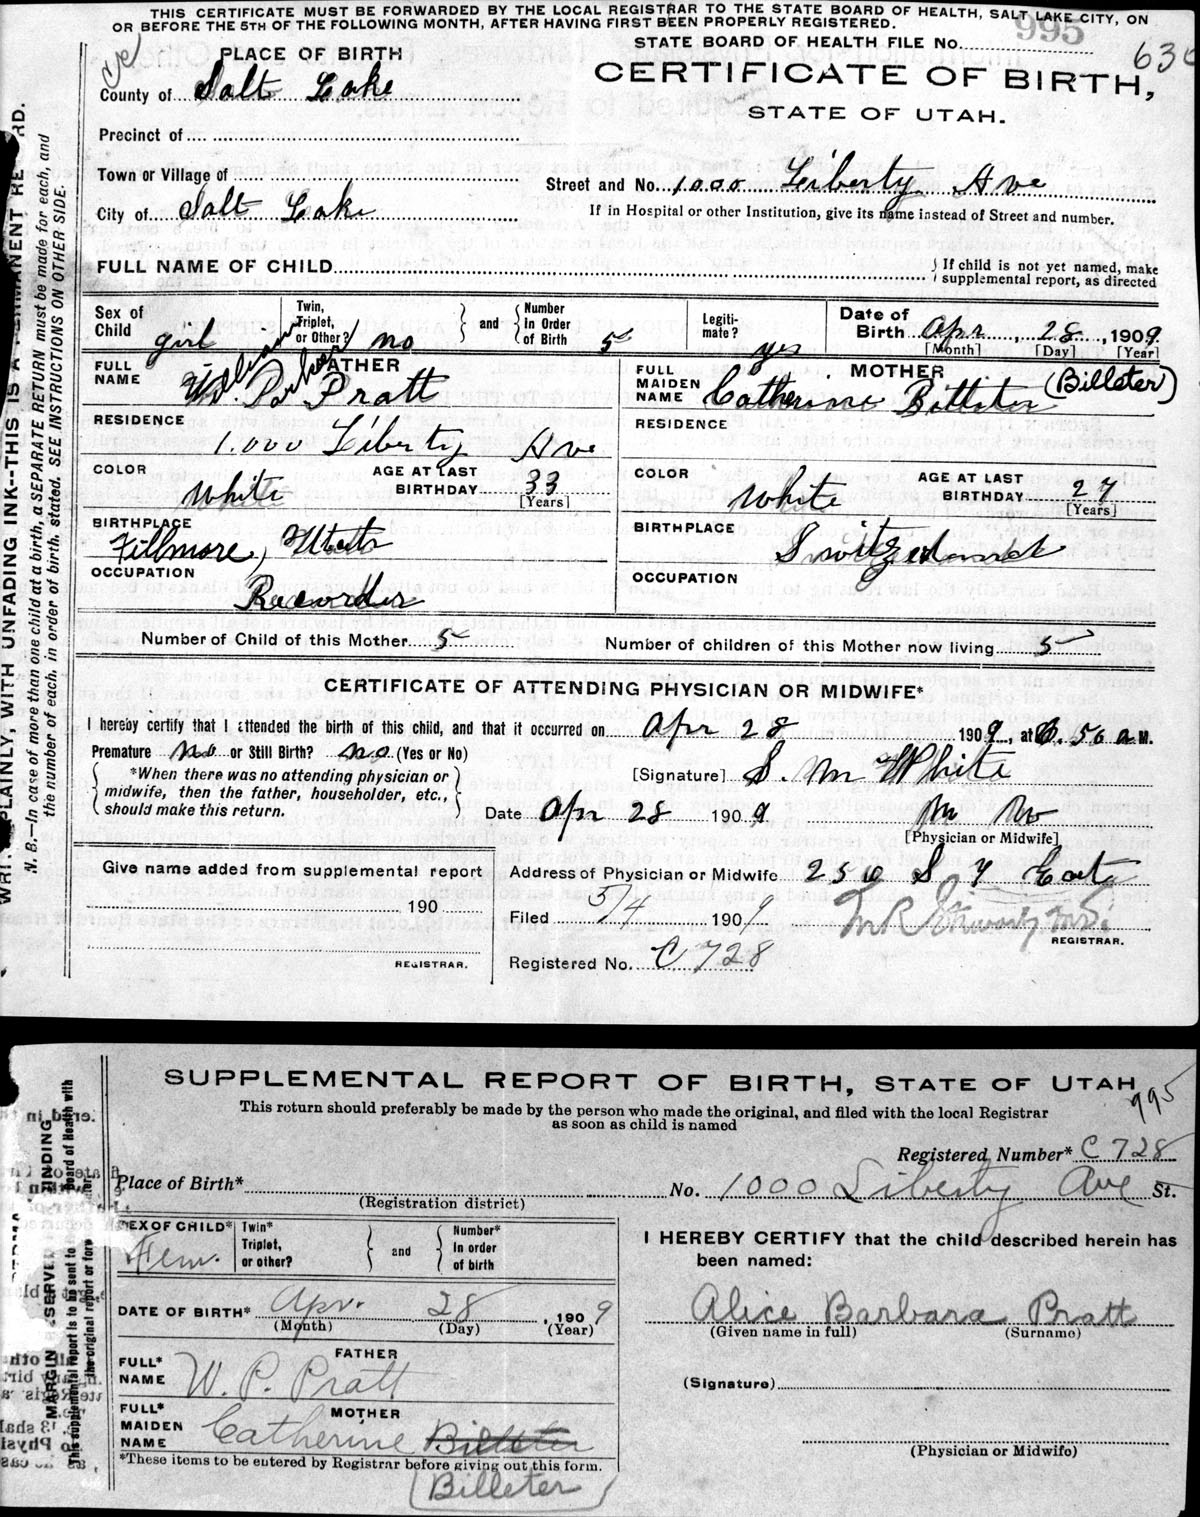 THIS CERTIFICATE MUST BE FORWARDED BY THE LOCAL REGISTRAR TO THE STATE BOARD OF HEALTH, SALT LAKE CITY, ON
OR BEFORE THE 5TH OF THE FOLLOWING MONTH, AFTER HAVING FIRST BEEN PROPERLY REGISTERED.
995
STATE BOARD OF HEALTH FILE No.
PLACE OF BIRTH
CERTIFICATE OF BIRTH,
STATE OF UTAH.
County of Salt Lake
Precinct of
Town or Village of
Street and No. 1000 Liberty Ave
City of Salt Lake
If in Hospital or other Institution, give its name instead of Street and number.
FULL NAME OF CHILD
If child is not yet named, make
supplemental report, as directed
Sex of Child girl
Twin, Triplet, or Other? no
and
Number In Order of Birth 5
Legiti-mate? yes
Date of Birth Apr 28, 1909
[Month] [Day] [Year]
FULL NAME
FATHER
W. P. Pratt
FULL MAIDEN NAME
MOTHER
Catherine Billeter (Billeter)
RESIDENCE
1.000 Liberty Ave
RESIDENCE
COLOR White
AGE AT LAST BIRTHDAY 33
[Years]
COLOR White
AGE AT LAST BIRTHDAY 27
[Years]
BIRTHPLACE
Fillmore, Utah
BIRTHPLACE
Switzerland
OCCUPATION
Recorder
OCCUPATION
Number of Child of this Mother 5
Number of children of this Mother now living 5
CERTIFICATE OF ATTENDING PHYSICIAN OR MIDWIFE*
I hereby certify that I attended the birth of this child, and that it occurred on Apr 28 1909, at 6.50 a M.
Premature no or Still Birth? no (Yes or No)
*When there was no attending physician or
midwife, then the father, householder, etc.,
should make this return.
[Signature] S. M White
Date Apr 28 1909
[Physician or Midwife]
Give name added from supplemental report
190
REGISTRAR.
Address of Physician or Midwife 250 S 7 East
Filed 5/4 1909
REGISTRAR.
Registered No. C 728
WRITE PLAINLY, WITH UNFADING INK--THIS IS A PERMANENT RECORD.
N. B.—In case of more than one child at a birth, a SEPARATE RETURN must be made for each, and
the number of each, in order of birth, stated. SEE INSTRUCTIONS ON OTHER SIDE.
SUPPLEMENTAL REPORT OF BIRTH, STATE OF UTAH
995
This return should preferably be made by the person who made the original, and filed with the local Registrar
as soon as child is named
Registered Number* C 728
Place of Birth*
(Registration district)
No. 1000 Liberty Ave St.
SEX OF CHILD* Fem.
Twin* Triplet, or other?
and
Number* In order of birth
I HEREBY CERTIFY that the child described herein has
been named:
DATE OF BIRTH* Apr. 28, 1909
(Month) (Day) (Year)
Alice Barbara Pratt
(Given name in full) (Surname)
FULL* NAME
FATHER
W. P. Pratt
(Signature)
FULL* MAIDEN NAME
MOTHER
Catherine
Billeter
*These items to be entered by Registrar before giving out this form.
(Physician or Midwife)